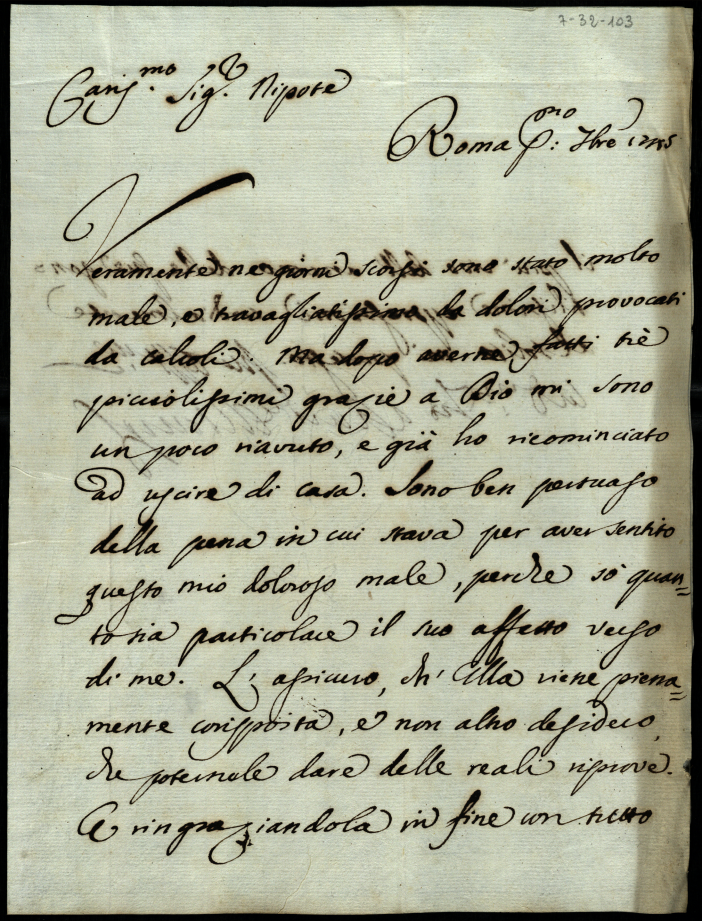 7-32-103
Cariss.mo Sig.r Nipote
Roma p.mo 7bre 1785
Veramente ne giorni scorsi sono stato molto
male, e travagliatissimo da dolori provocati
da calcoli. Ma dopo averne fatti trè
picciolissimi grazie a Dio mi sono
un poco riavuto, e già ho ricominciato
ad uscire di casa. Sono ben persuaso
della pena in cui stava per aver sentito
questo mio doloroso male, perche sò quan=
to sia particolare il suo affetto verso
di me. L'assicuro, ch'Ella viene piena=
mente corrisposta, e non altro desidero,
che potergliele dare delle reali riprove.
E ringraziandola in fine con tutto